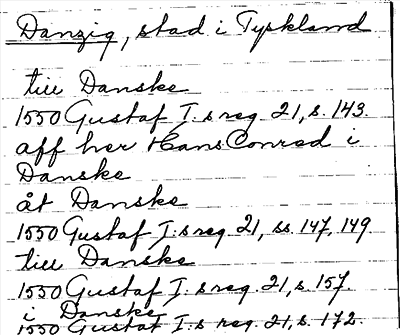 Danzig, stad i Tyskland
till Danske
1550 Gustaf I:s reg. 21, s. 143.
aff her Hans Conrad i
Danske
åt Danske
1550 Gustaf I:s reg. 21, ss. 147, 149
till Danske
1550 Gustaf I:s reg. 21, s. 157.
i Danske
1550 Gustaf I:s reg. 21, s. 172.